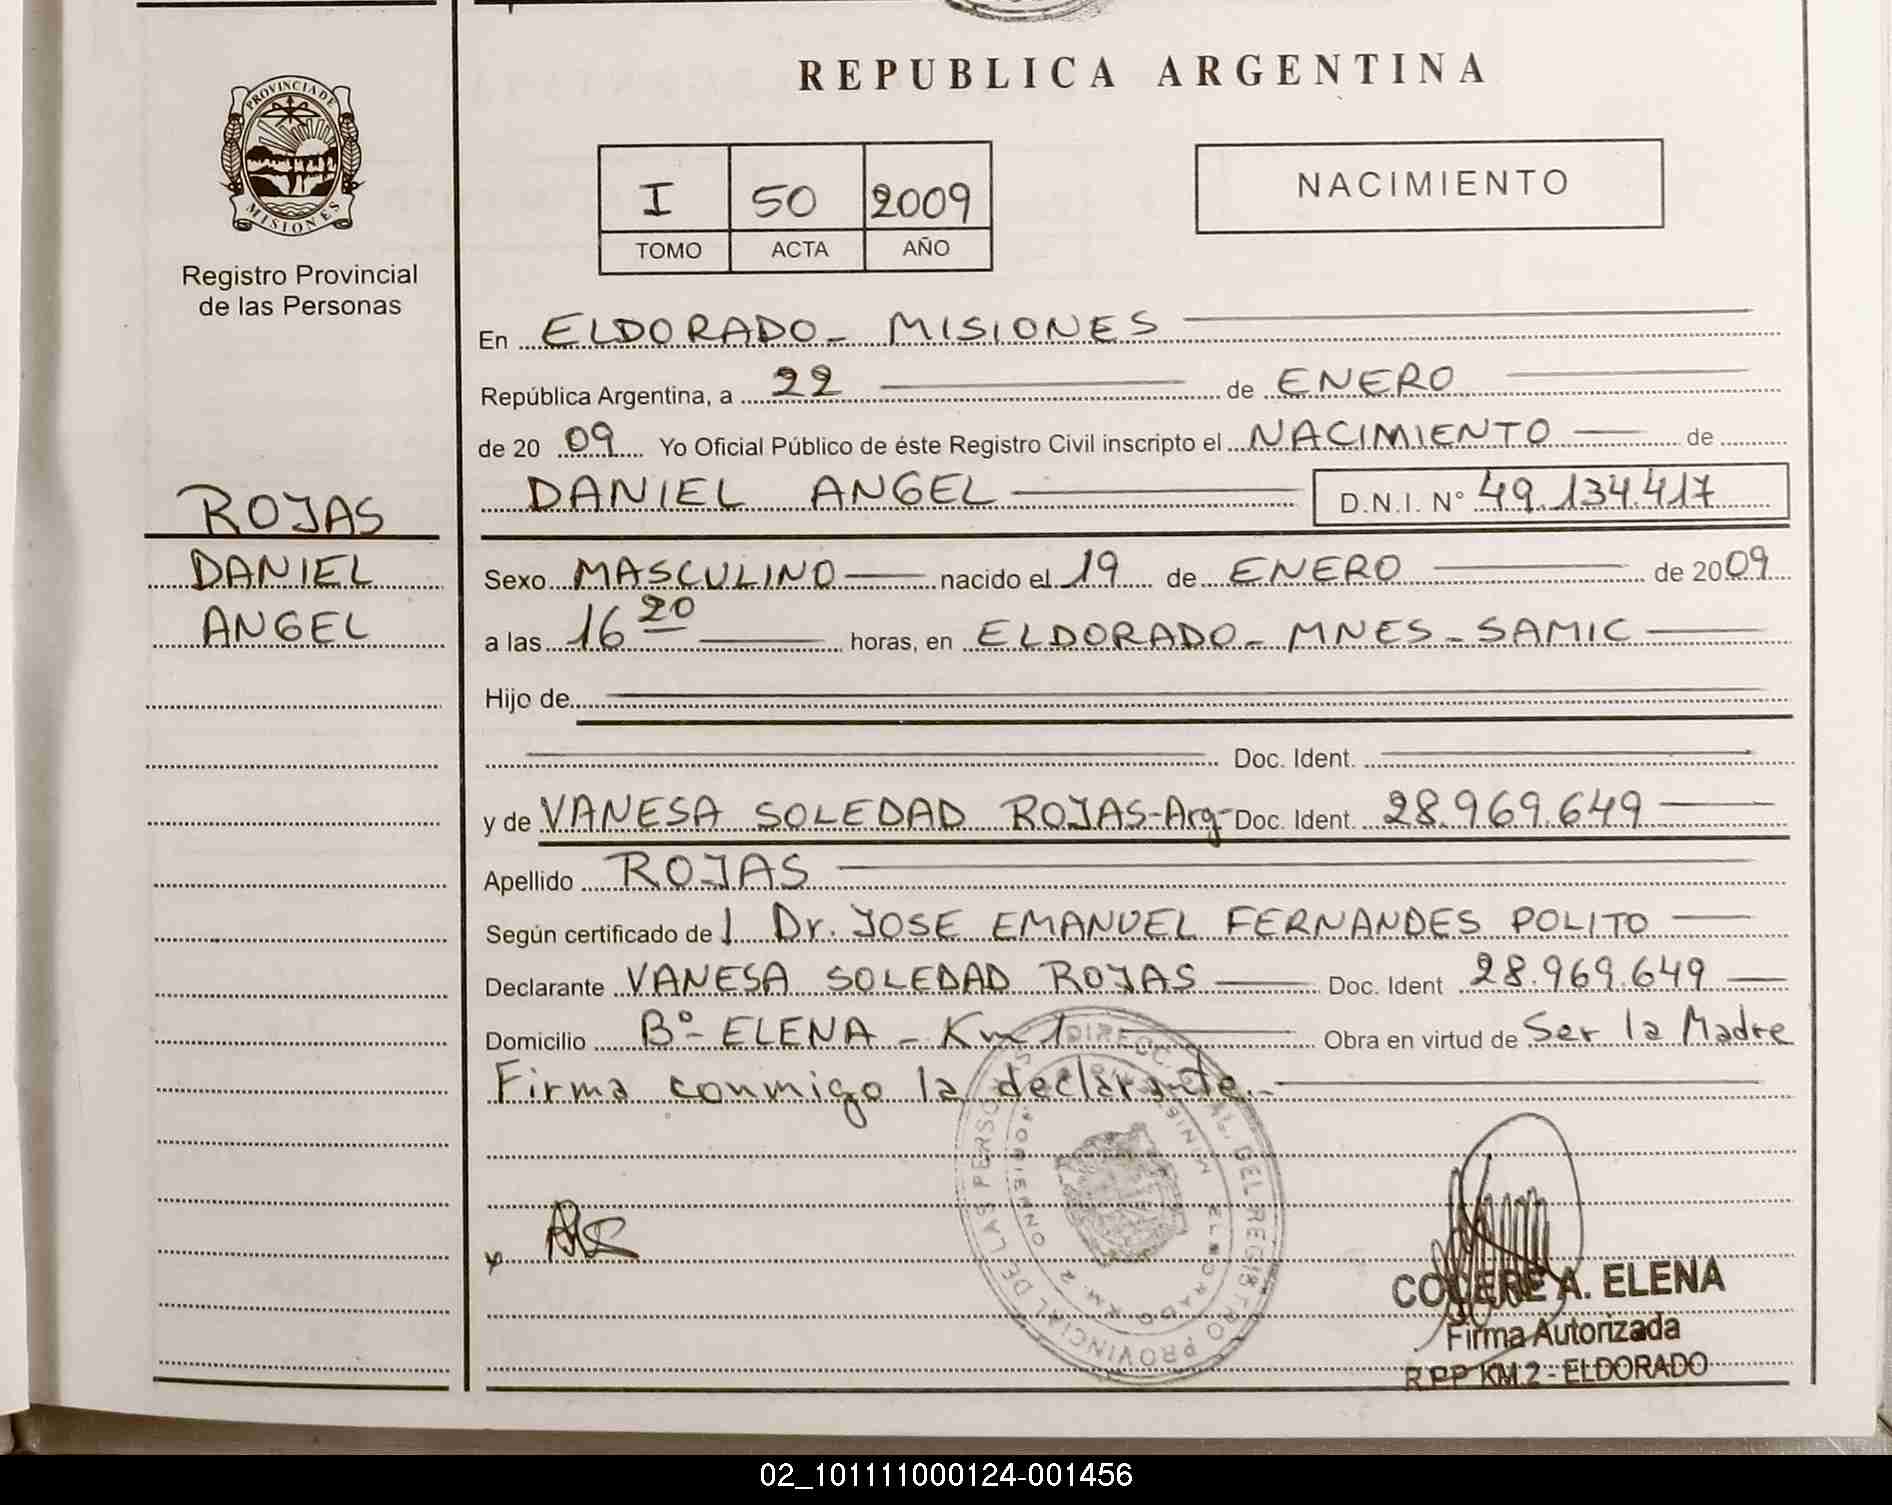 REPUBLICA ARGENTINA
PROVINCIA DE MISIONES
Registro Provincial
de las Personas
I 50 2009
TOMO ACTA AÑO
NACIMIENTO
En ELDORADO - MISIONES
República Argentina, a 22 de ENERO
de 20 09 Yo Oficial Público de éste Registro Civil inscripto el NACIMIENTO de
DANIEL ANGEL D.N.I. N° 49.134.417
ROJAS
DANIEL
ANGEL
Sexo MASCULINO nacido el 19 de ENERO de 2009
a las 16 20 horas, en ELDORADO - MNES - SAMIC
Hijo de
Doc. Ident.
y de VANESA SOLEDAD ROJAS-Arg- Doc. Ident. 28.969.649
Apellido ROJAS
Según certificado de l Dr. JOSE EMANUEL FERNANDES POLITO
Declarante VANESA SOLEDAD ROJAS Doc. Ident 28.969.649
Domicilio B°- ELENA - Km 1 Obra en virtud de Ser la Madre
Firma conmigo la declarante.-
DIRECC. DEL REGISTRO PROVINCIAL DE LAS PERSONAS
ELDORADO KM. 2
A. ELENA
Firma Autorizada
R.P.P KM.2 - ELDORADO
02_101111000124-001456